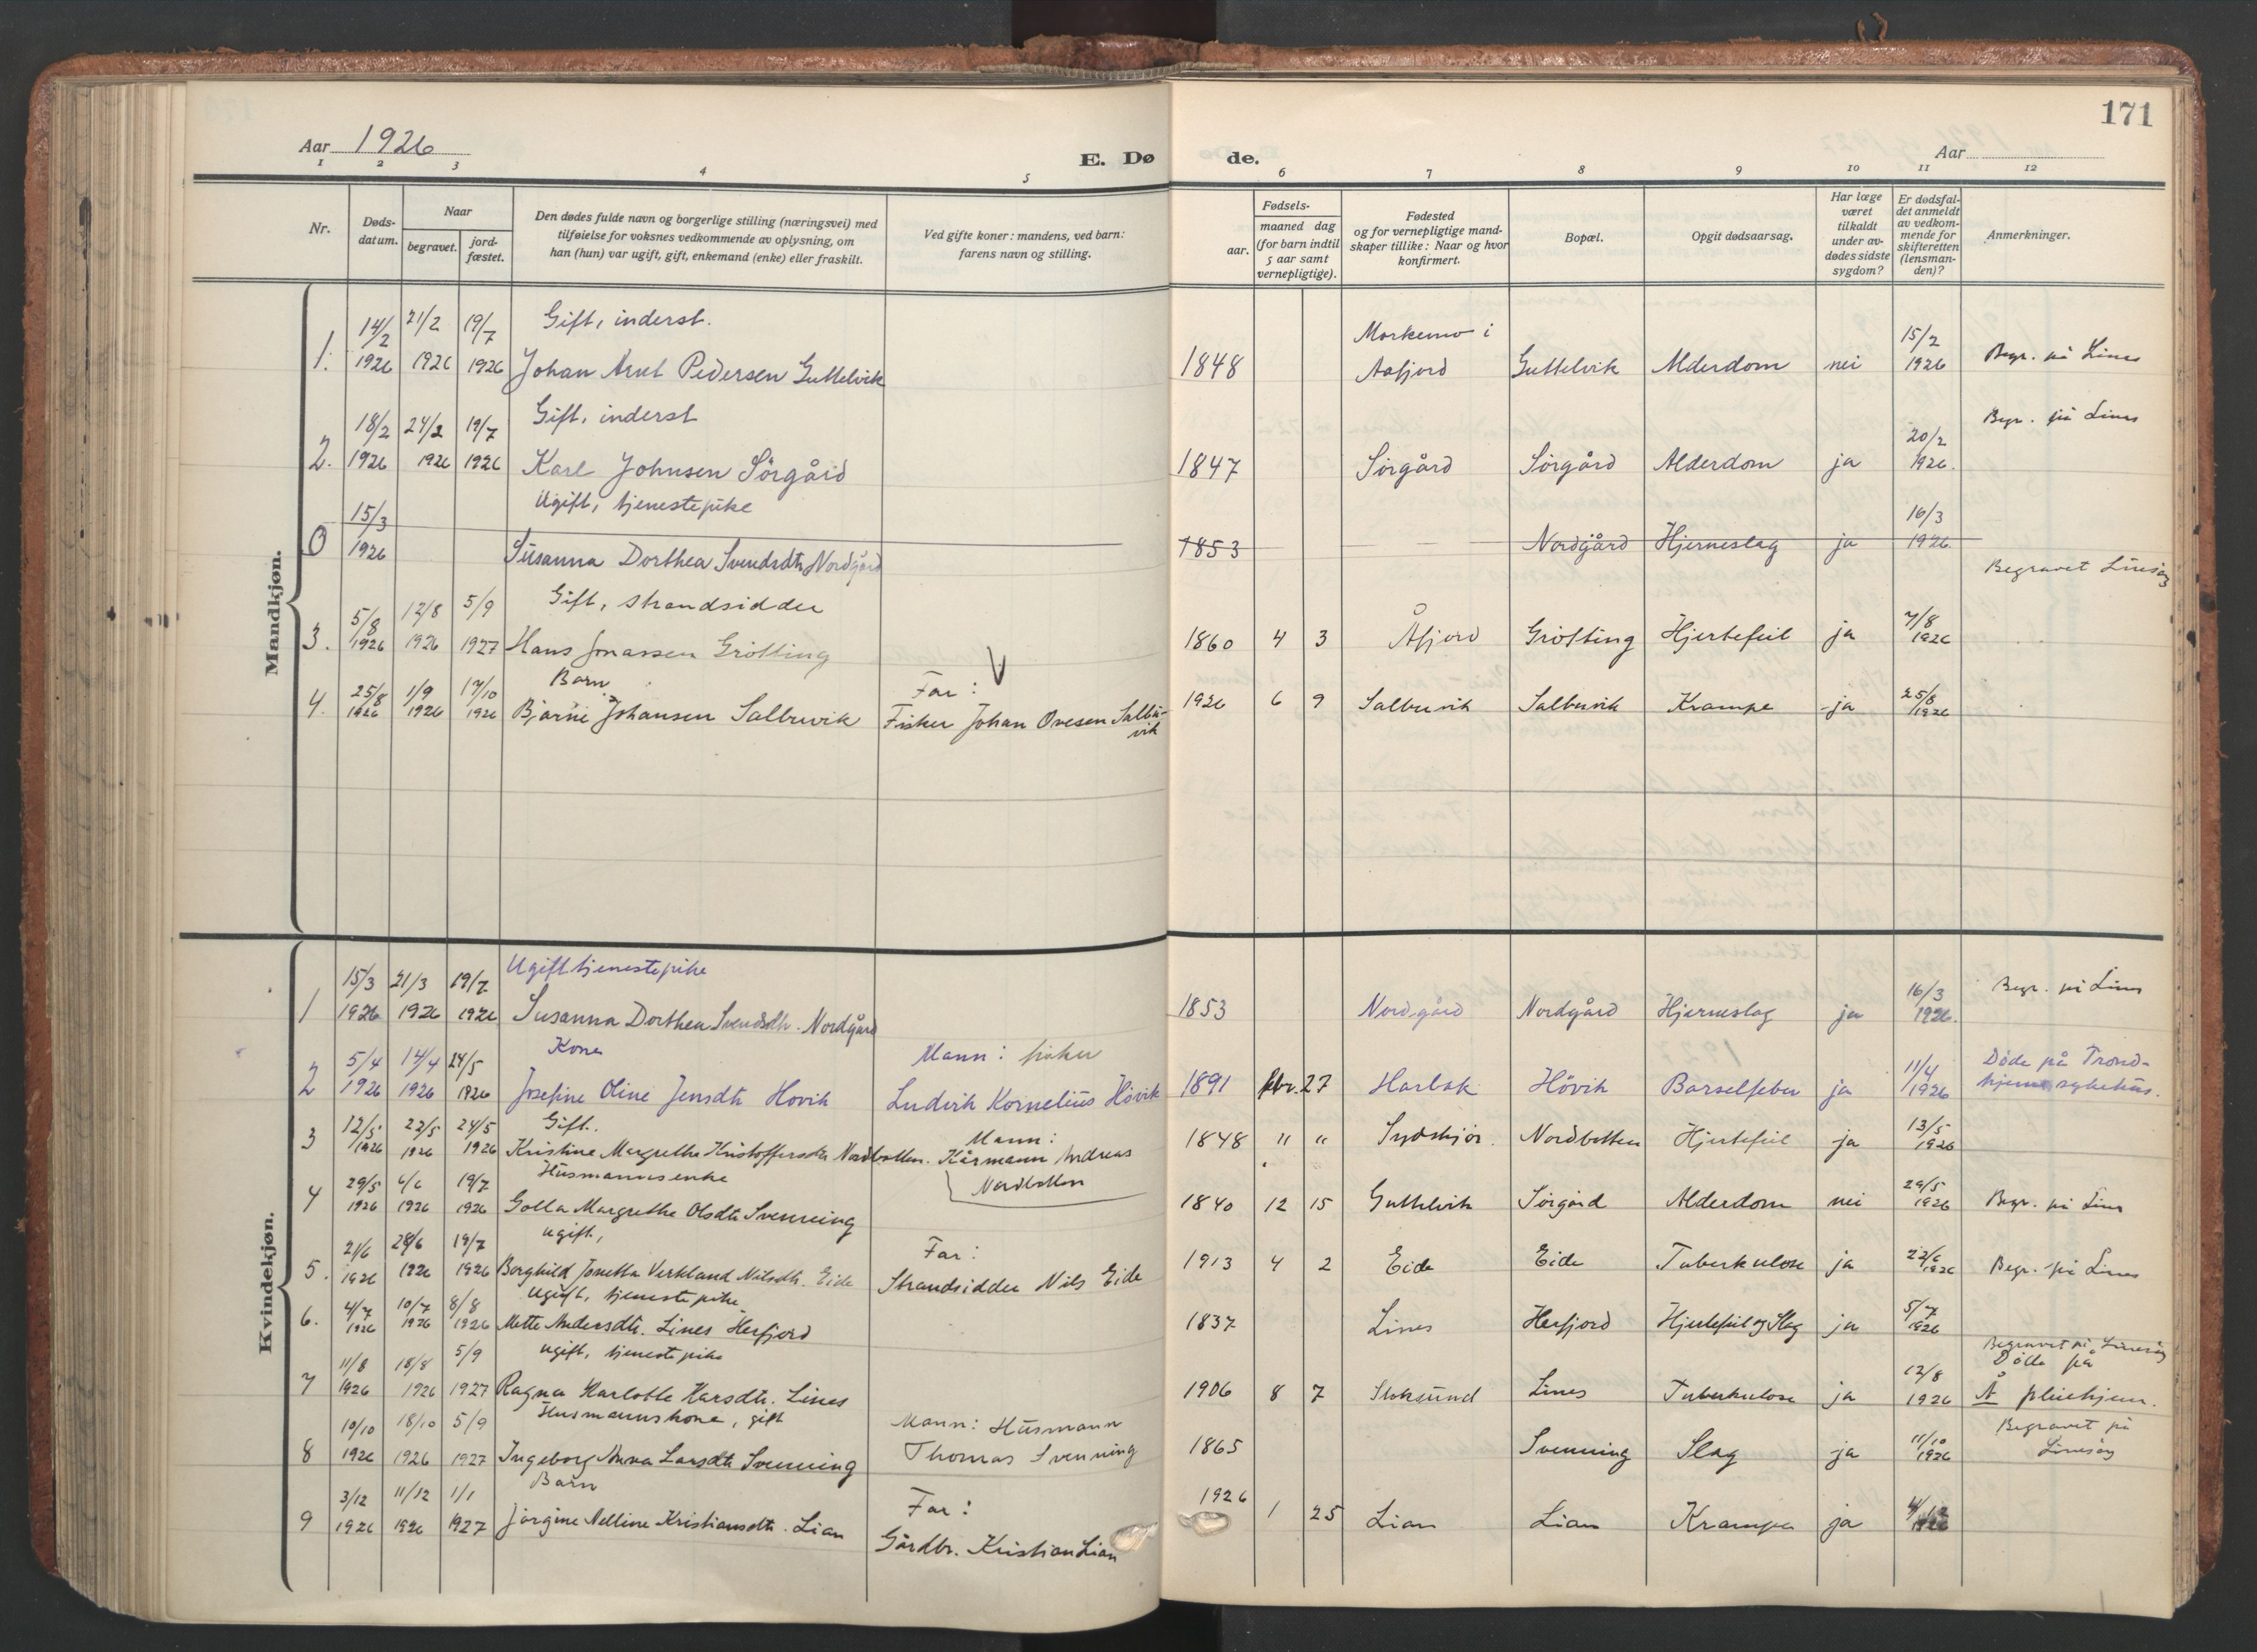 171
Aar 1926
E. Dø de.
Aar
1 2 3 4 5 6 7 8 9 10 11 12
Nr.
Døds-
datum.
Naar
begravet.
jord-
fæstet.
Den dødes fulde navn og borgerlige stilling (næringsvei) med
tilføielse for voksnes vedkommende av oplysning, om
han (hun) var ugift, gift, enkemand (enke) eller fraskilt.
Ved gifte koner: mandens, ved barn:
farens navn og stilling.
Fødsels-
aar.
maaned dag
(for barn indtil
5 aar samt
vernepligtige).
Fødested
og for vernepligtige mand-
skaper tillike: Naar og hvor
konfirmert.
Bopæl.
Opgit dødsaarsag.
Har læge
været
tilkaldt
under av-
dødes sidste
sygdom?
Er dødsfal-
det anmeldt
av vedkom-
mende for
skifteretten
(lensman-
den)?
Anmerkninger.
Mandkjøn.
14/2 21/2 19/7 Gift, inderst. Morkemo i 15/2
1. 1926 1926 1926 Johan Arnt Pedersen Guttelvik 1848 Aafjord Guttelvik Alderdom nei 1926 Begr. på Lines
18/2 24/2 19/7 Gift, inderst 20/2 Begr. på Lines
2. 1926 1926 1926 Karl Johnsen Sörgård 1847 Sörgård Sörgård Alderdom ja 1926.
15/3 Ugift, tjenestepike 16/3
0 1926 Susanna Dorthea Svendsdtr Nordgård 1853 — — Nordgård Hjerneslag ja 1926.
5/8 12/8 5/9 Gift, strandsidder 7/8 Begravet Linesöy
3. 1926 1926 1927 Hans Jonassen Grötting 1860 4 3 Åfjord Grötting Hjertefeil ja 1926
25/8 1/9 17/10 Barn Far: 25/8
4. 1926 1926 1926 Bjarne Johansen Salbuvik Fisker Johan Ovesen Salbu-
vik 1926 6 9 Salbuvik Salbuvik Krampe ja 1926
Kvindekjøn.
15/3 21/3 19/7 Ugift tjenestepike 16/3 Begr. på Lines
1 1926 1926 1926 Susanna Dorthea Svendsdtr. Nordgård 1853 Nordgård Nordgård Hjerneslag ja 1926.
5/4 14/4 24/5 Kone Mann: fisker 11/4 Döde på Trond-
2 1926 1926 1926 Josefine Oline Jensdtr Hovik Ludvik Kornelius Hövik 1891 febr. 27 Harbak Hövik Barselfeber ja 1926 hjems sykehus.
12/5 22/5 24/5 Gift. Mann: 13/5
3 1926 1926 1926 Kristine Margrethe Kristoffersdtr Nordbotten. Kårmann Andreas
Nordbotten 1848 " " Sydskjör. Nordbotten Hjertefeil ja 1926
29/5 6/6 19/7 Husmannsenke 29/5
4 1926 1926 1926 Golla Margrethe Olsdtr Svenning 1840 12 15 Guttelvik Sörgård Alderdom nei 1926 Begr. på Lines
21/6 28/6 19/7 ugift, Far: 22/6
5. 1926 1926 1926 Borghild Jonetta Verkland Nilsdtr. Eide Strandsidder Nils Eide 1913 4 2 Eide Eide Tuberkulose ja 1926 Begr. på Lines
4/7 10/7 8/8 Ugift, tjenestepike 5/7
6. 1926 1926 1926 Mette Andersdtr. Lines Herfjord 1837 Lines Herfjord Hjertefeil og Slag ja 1926
11/8 18/8 5/9 ugift, tjenestepike 12/8 Begravet på Linesöy
Döde på
7 1926 1926 1927 Ragna Karlotte Larsdtr. Lines 1906 8 7 Stoksund Lines Tuberkulose ja 1926 Å pleiehjem.
10/10 18/10 5/9 Husmannskone, gift Mann: Husmann 11/10 Begravet på
8 1926 1926 1927 Ingeborg Anna Larsdtr Svenning Thomas Svenning 1865 Svenning Slag ja 1926 Linesöy
3/12 11/12 1/1 Barn Far: 1926
9 1926 1926 1927 Jörgine Nelline Kristiansdtr. Lian Gårdbr. Kristian Lian 1 25 Lian Lian Krampe ja 4/12